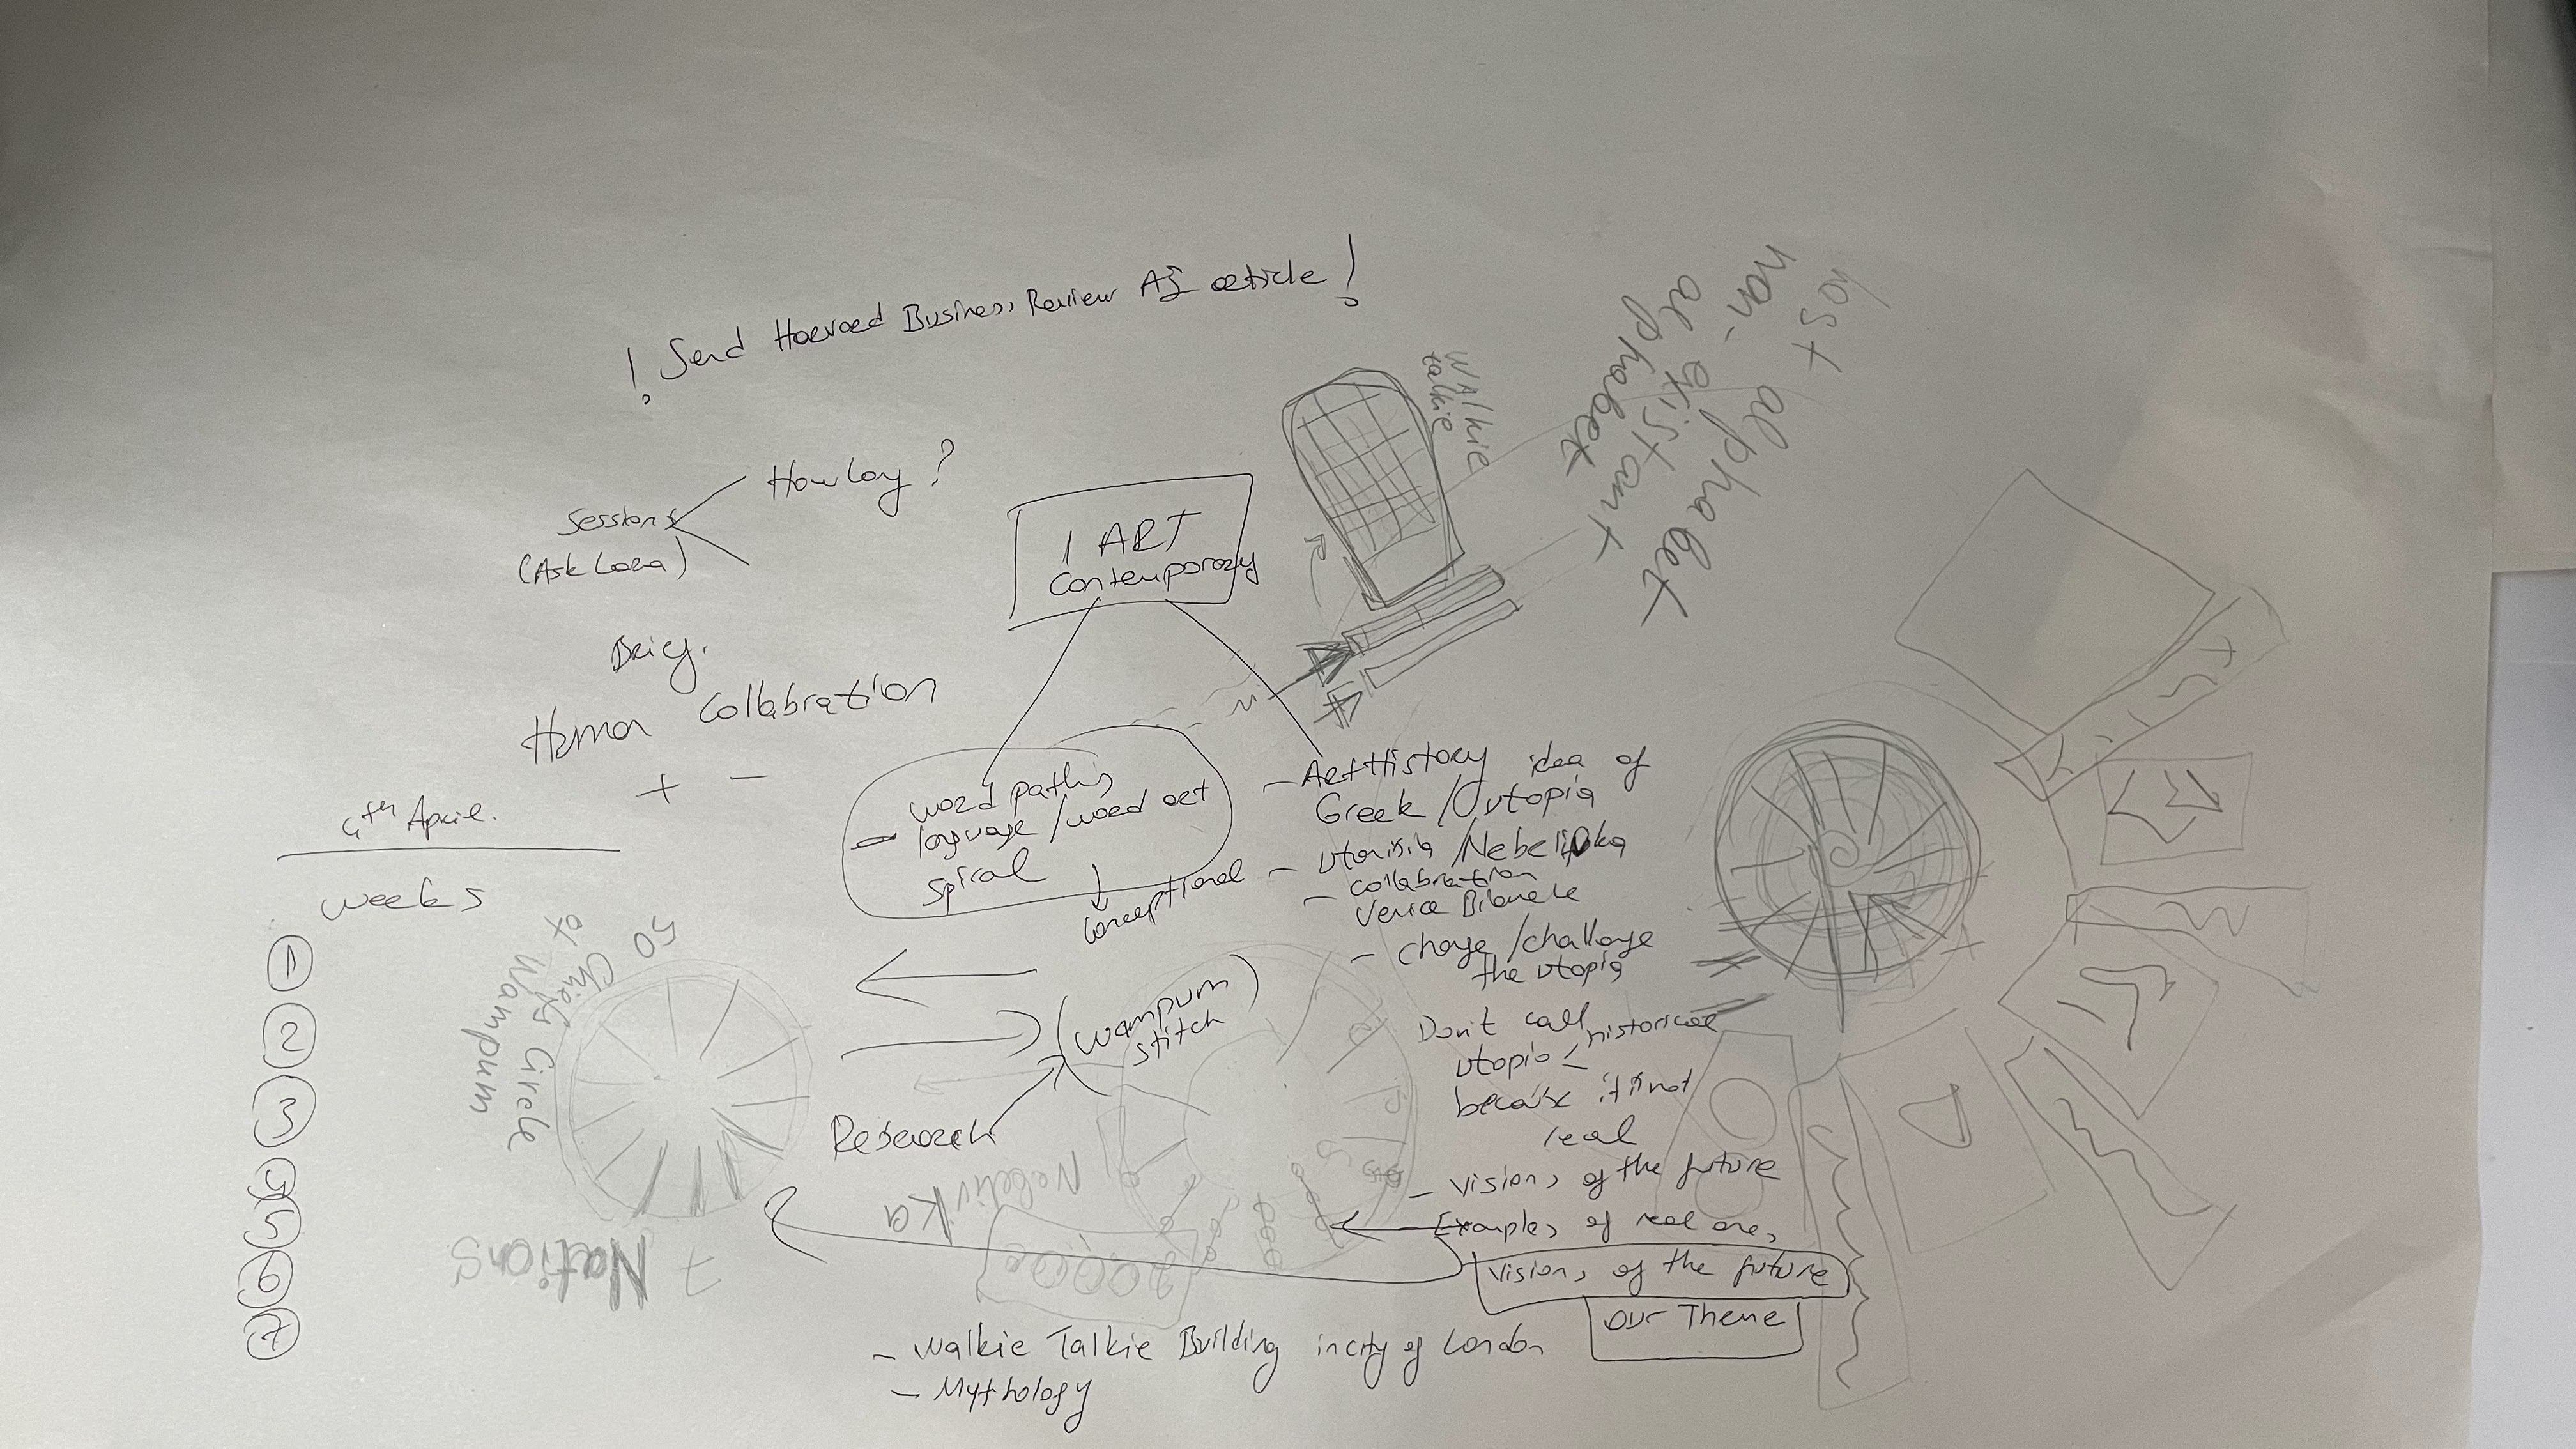 ! Send Harvard Business Review AI article !
Sessions
(Ask Lora)
How long ?
Brief.
Human Collabration
+ -
4th April.
weeks
1
2
3
4
5
6
7
1 ART
Contemporary
word paths
- language / word art
spiral
conceptional
- Art History idea of
Greek / Utopia
- utopia / Nebelivka
- collabration
Venice Bianale
- change / challange
the utopia
Don't call historical
utopia
because it is not
real
- visions of the future
- Examples of real ones
visions of the future
our Theme
(wampum
stitch)
Research
- Walkie Talkie Building in city of London
- Mythology
WAlkie
talkie
lost alphabet
non-existant
alphabet
50 Chiefs Circle
of Wampum
7 Nations
Nebelivka